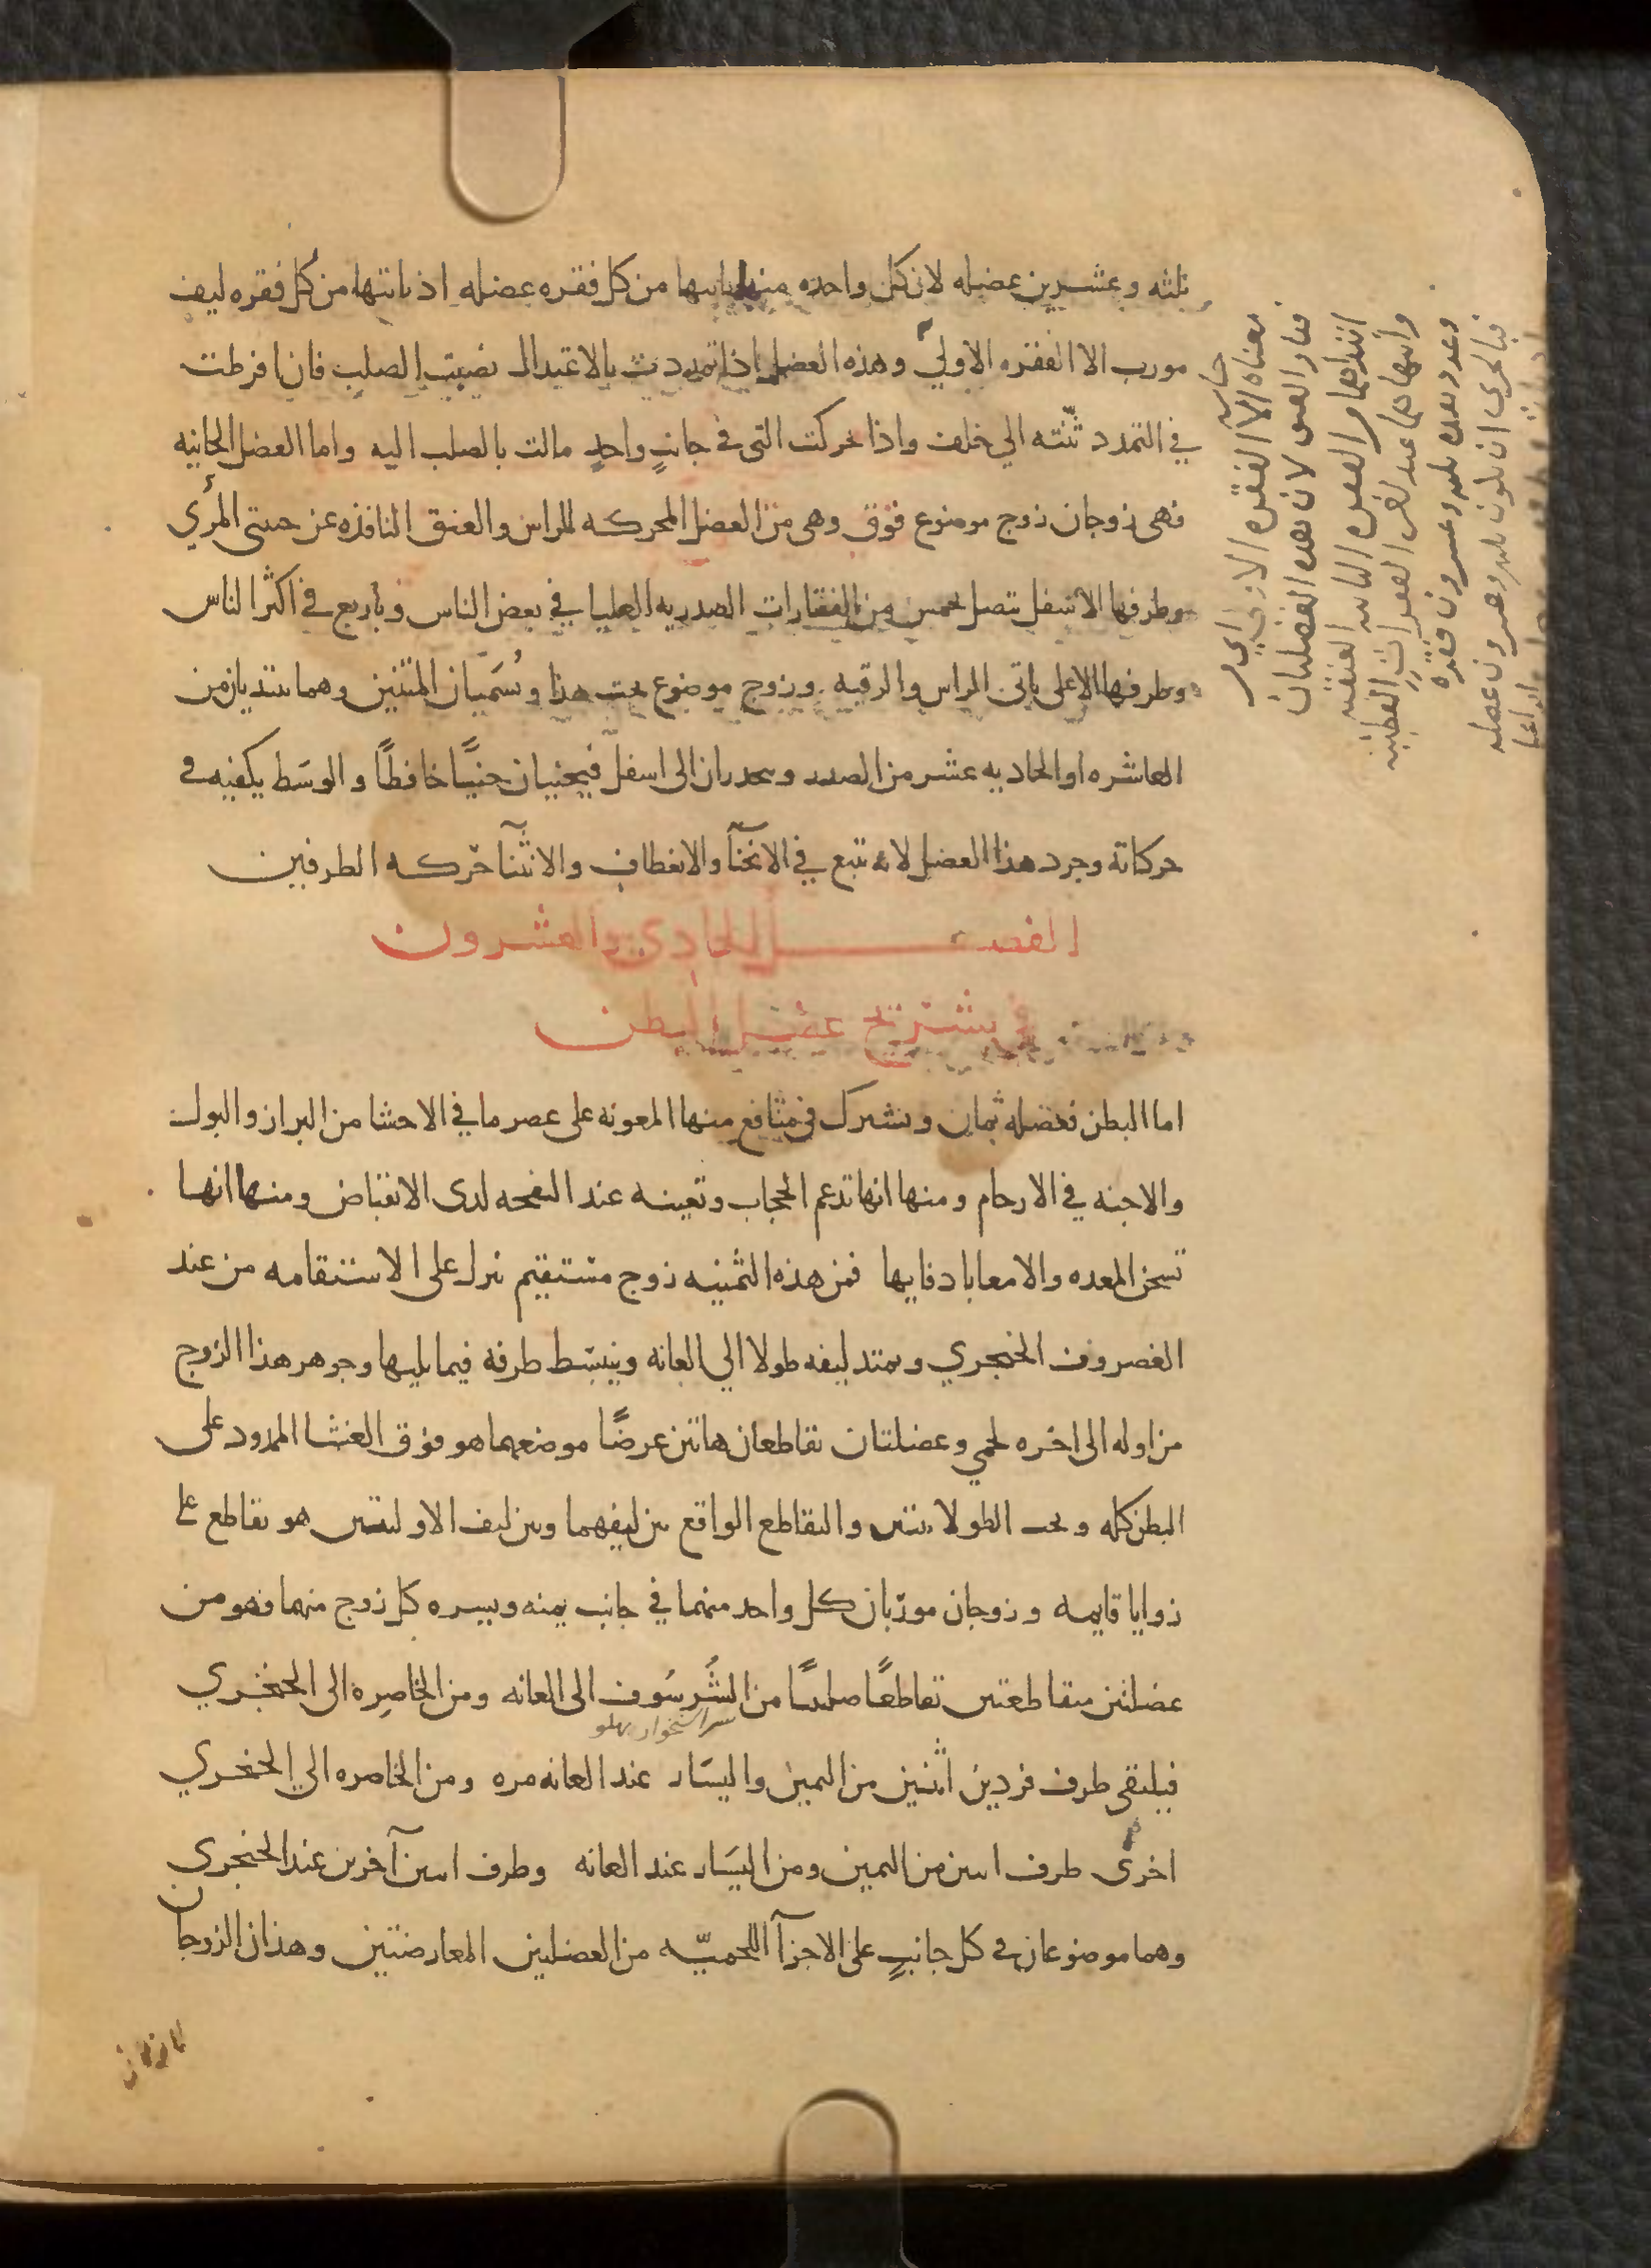 ثلثه وعشرين عضله لان كل واحده منها ياتيها من كل فقره عضله اذ ياتيها من كل فقره ليف
مورب الا الفقره الاولى وهذه العضل اذا تمددت بالاعتدال نصبت الصلب فان افرطت
في التمدد ثنته الي خلف واذا تحركت التى في جانبٍ واحدٍ مالت بالصلب اليه واما العضل الحانيه
فهى زوجان زوج موضوع فوق وهى من العضل المحركه للراس والعنق النافذه عن جنبتى المرئ
وطرفها الاسفل يتصل بخمس من الفقارات الصدريه العليا في بعض الناس وباربع في اكثر الناس
وطرفها الاعلى ياتى الراس والرقبه وزوج موضوع تحت هذا ويُسَميان المتنين وهما يبتديان من
العاشره او الحاديه عشر من الصدر وينحدران الى اسفل فيحنيان حنيًا خافضًا والوسَط يكفيه في
حركاته وجود هذا العضل لانه يتبع في الانحنآ والانعطاف والانثنآ حركه الطرفين
الفصل الحادى والعشرون
في تشريح عضل البطن
اما البطن فعضله ثمان وتشترك في منافع منها المعونه على عصر ما في الاحشا من البراز والبول
والاجنه في الارحام ومنها انها تدعم الحجاب وتعينه عند النفخه لدى الانقباض ومنها انها
تسخن المعده والامعا بادفايها فمن هذه الثمنيه زوج مستقيم ينزل على الاستقامه من عند
الغضروف الخنجري ويمتد ليفه طولا الي العانه وينبسَط طرفه فيما يليها وجوهر هذا الزوج
من اوله الى اخره لحمي وعضلتان تقاطعان هاتين عرضًا موضعهما هو فوق الغشا الممدود على
البطن كله وتحت الطولانيتين والتقاطع الواقع بين ليفهما وبين ليف الاوليتين هو تقاطع على
زوايا قايمه وزوجان موربان كل واحد منهما في جانب يمنه ويسره كل زوج منهما فهو من
عضلتين متقاطعتين تقاطعًا صليبيًا من الشُرسُوف الى العانه ومن الخاصِره الى الخنجري
سر استخوان پهلو
فيلتقى طرف فردين اثنين من اليمين واليسَار عند العانه مره ومن الخاصره الي الخنجري
اخرى طرف اثنين من اليمين ومن اليسَار عند العانه وطرف اثنين آخرين عند الخنجرى
وهما موضوعان في كل جانبٍ على الاجزآ اللحميّه من العضلتين المعارضتين وهذان الزوجان
معناه الا الفقره الاولى اى من
فقار العنق لان هذه العضلتان
ابتداهما من الفقره الثانيه العنقيه
وانتهاهما عند اخر الفقرات القطنيه
وعدد هذه ثلثه وعشرون فقره
فبالحرى ان تكون ثلثه وعشرون عضله